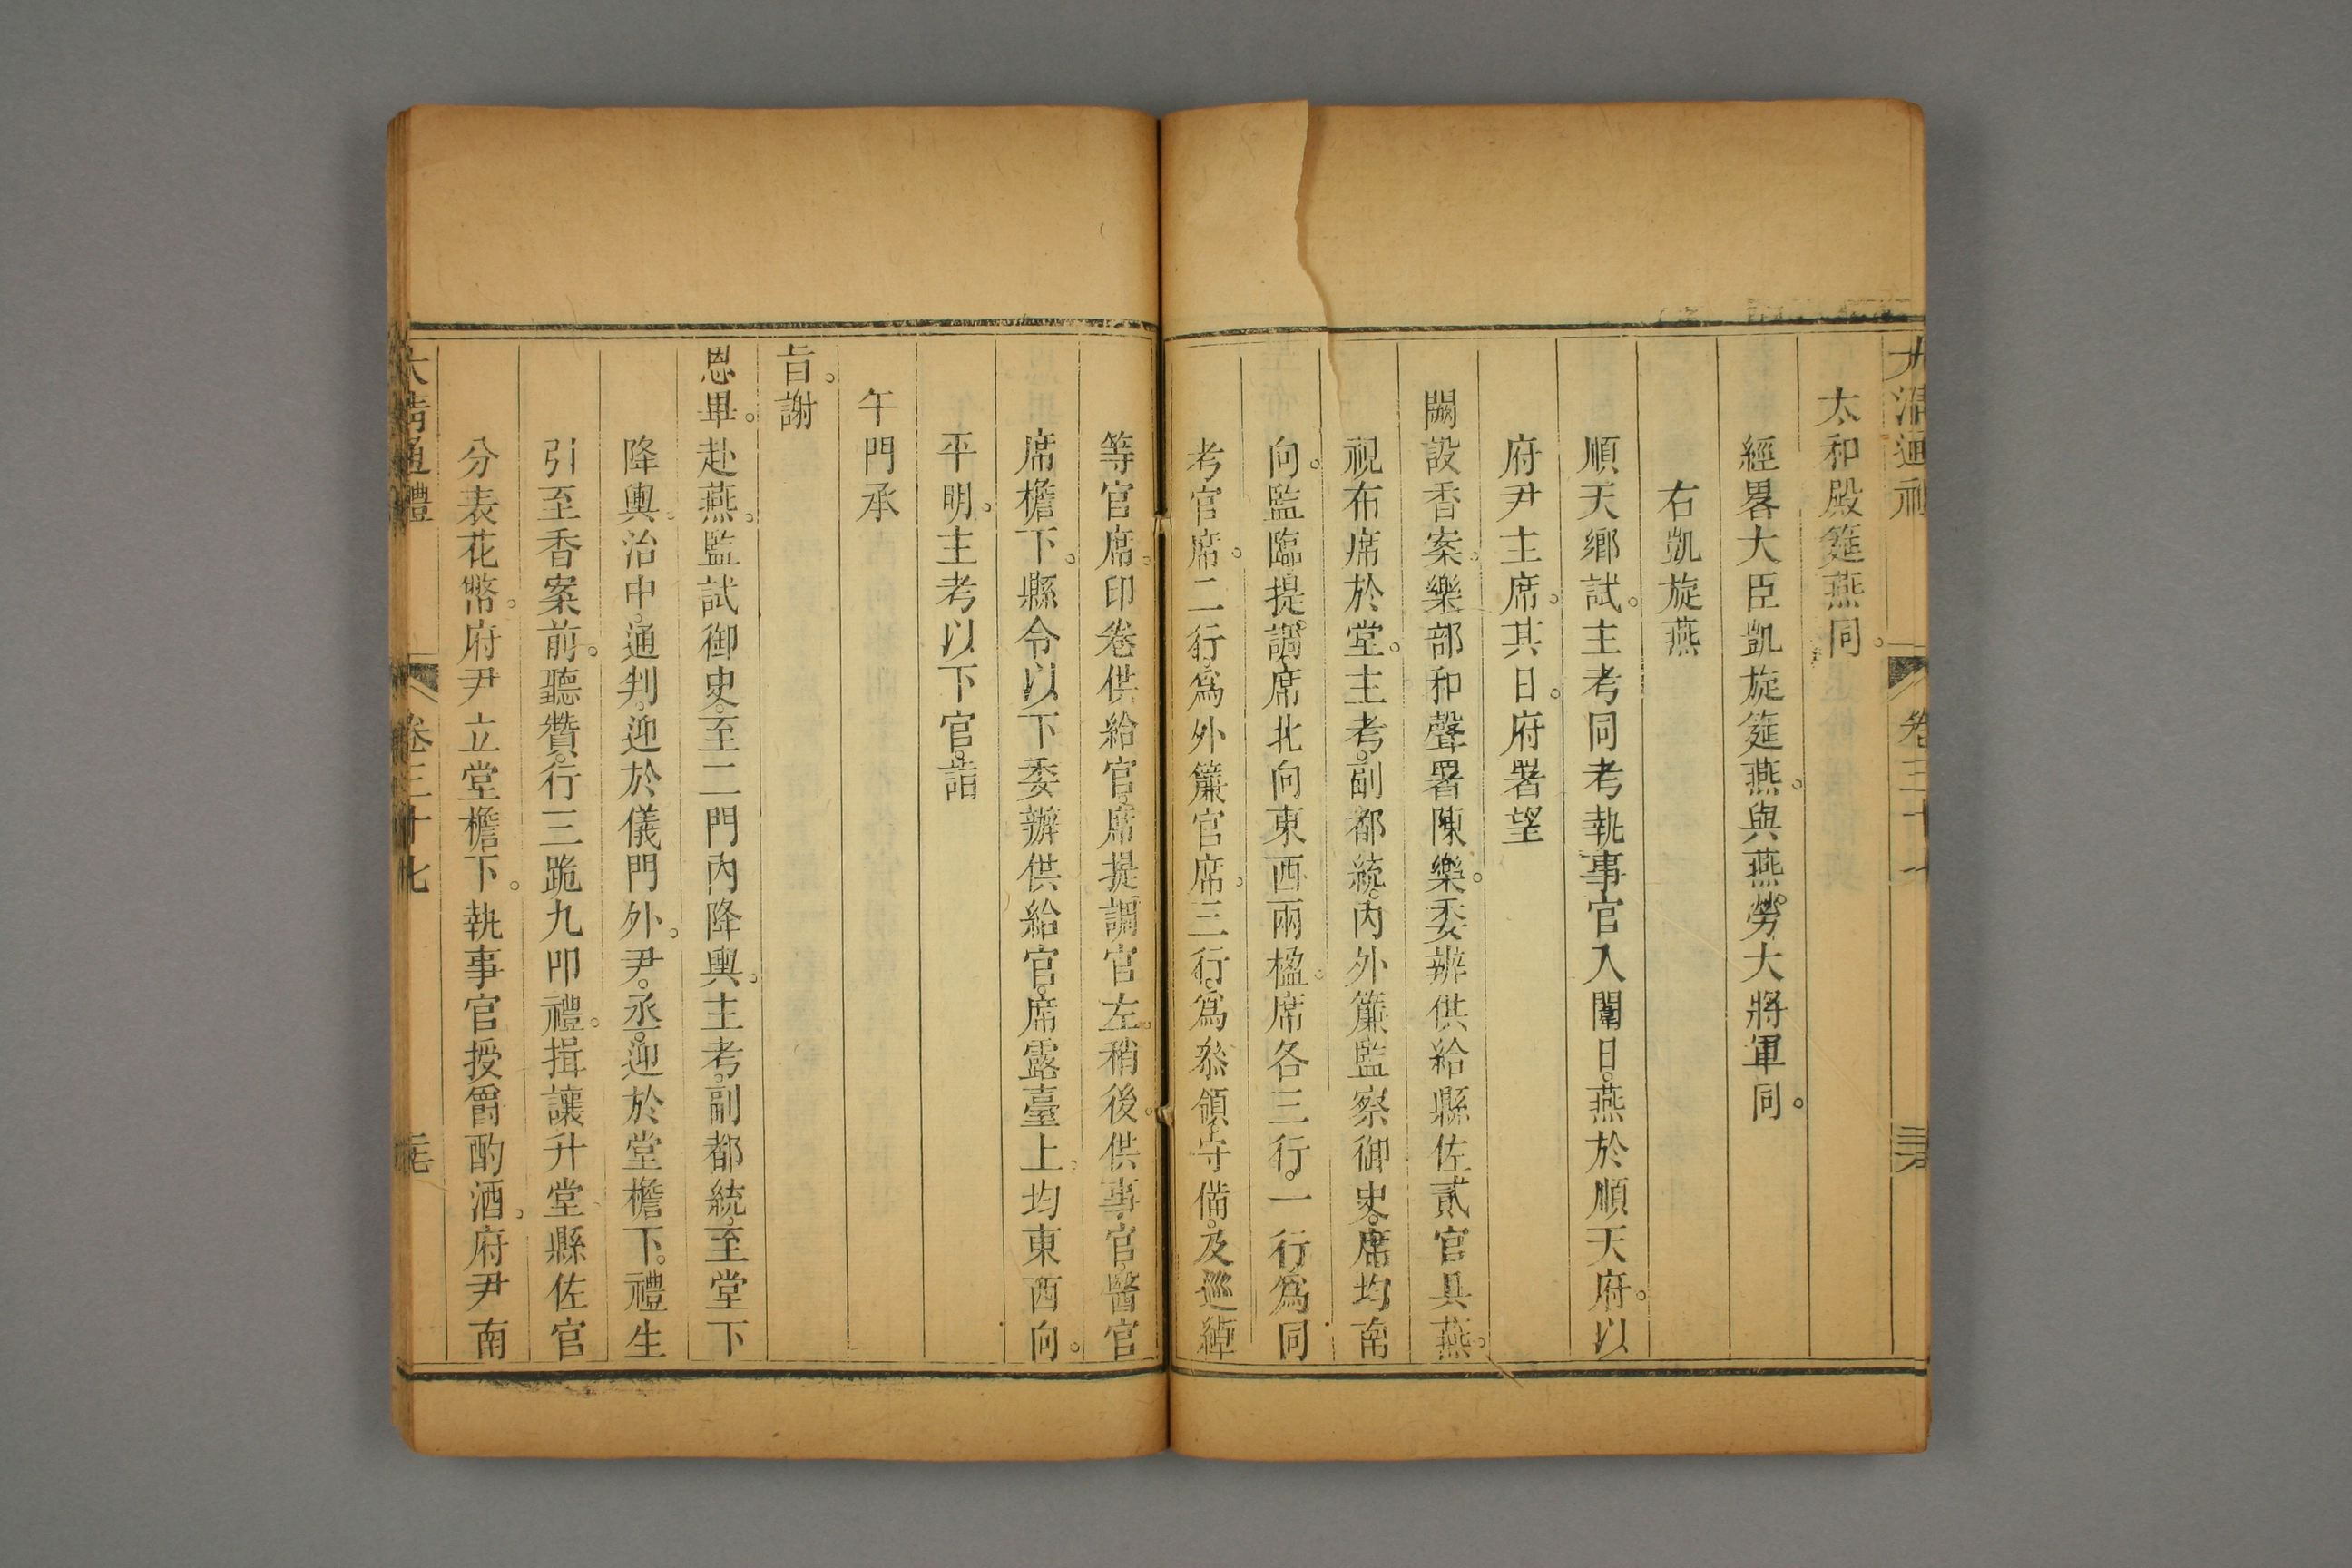 太和殿筵燕同。
經畧大臣凱旋筵燕。與燕。勞大將軍同。
右凱旋燕
順天鄉試。主考同考執事官入闈日。燕於順天府。以
府尹主席。其日。府署望
闕設香案。樂部和聲署陳樂。委辦供給縣佐貳官具燕。
視布席於堂。主考。副都統。內外簾監察御史。席均南
向。監臨。提調。席北向東西兩楹。席各三行。一行爲同
考官席。二行。爲外簾官席。三行。爲叅領。守備。及巡綽
等官席。印卷供給官。席提調官左。稍後。供事官。醫官
席檐下。縣令以下委辦供給官。席露臺上。均東西向。
平明。主考以下官。詣
午門承
旨。謝
恩畢。赴燕。監試御史。至二門內降輿。主考。副都統。至堂下
降輿。治中。通判。迎於儀門外。尹。丞。迎於堂檐下。禮生
引至香案前。聽贊。行三跪九叩禮。揖讓升堂。縣佐官
分表花幣。府尹立堂檐下。執事官授爵酌酒。府尹南
大清通禮 卷三十七